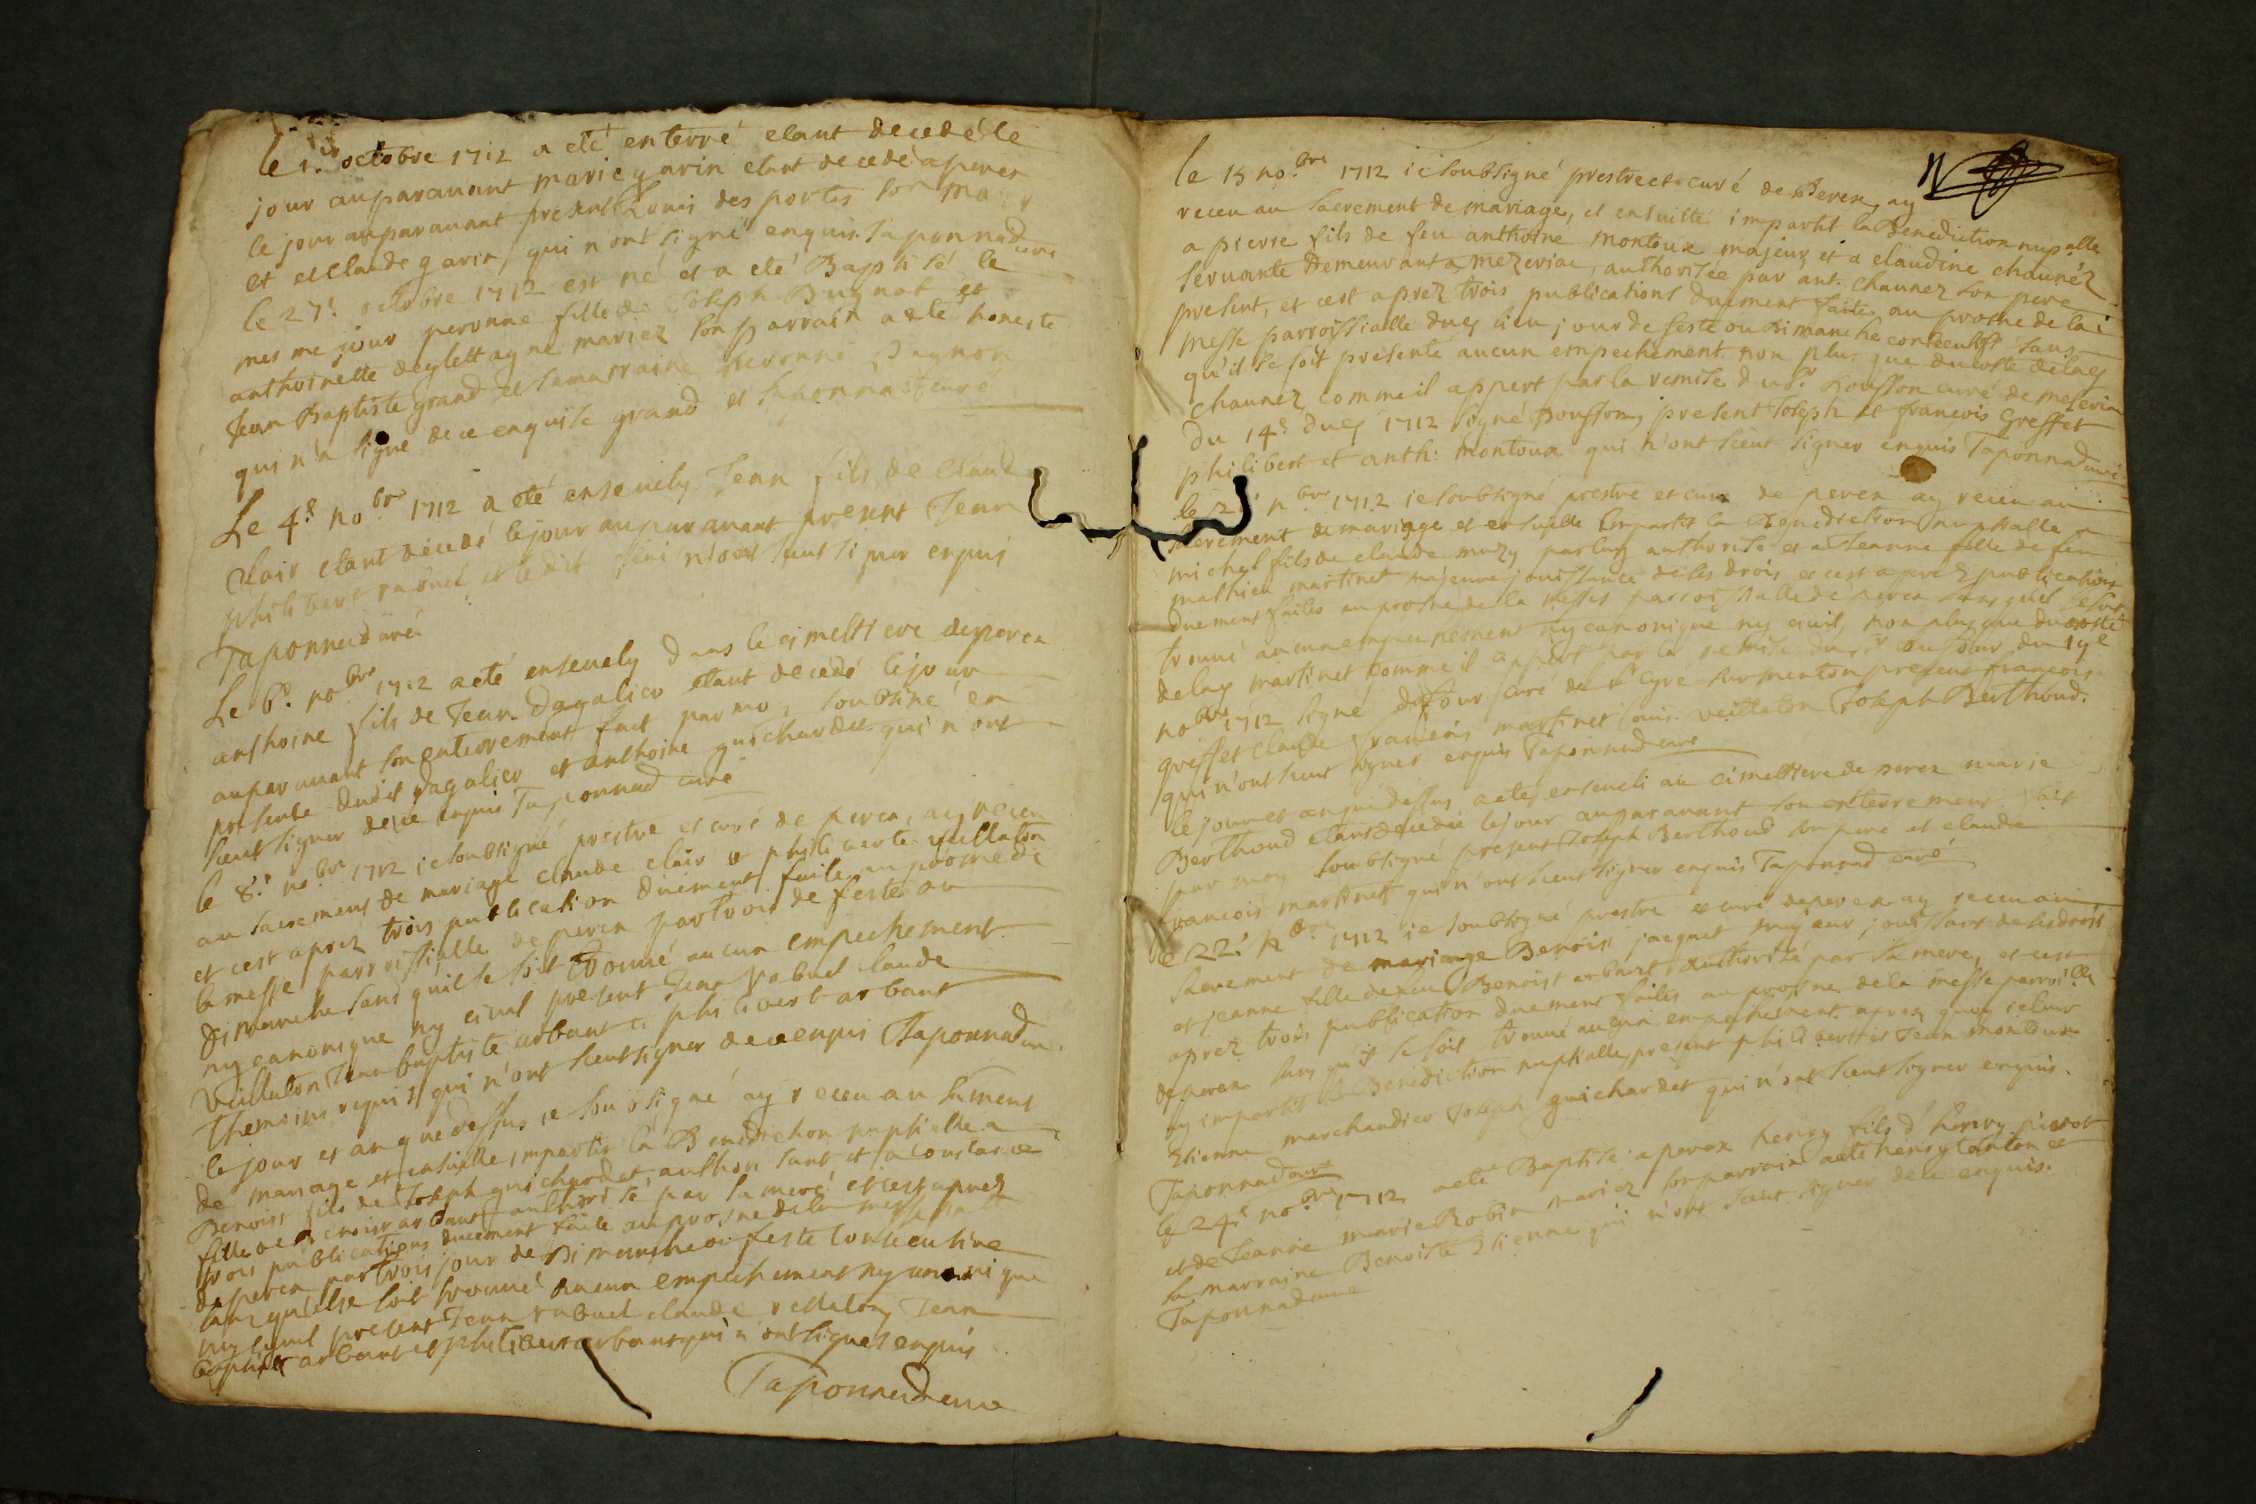 le 1.er octobre 1712 a eté enterré etant decedé le
jour auparauant marie garin etant decedé a perex
le jour auparauant present Louis des portes son
et et Claude garin, qui n'ont signé enquis taponnad curé
le 27.e octobre 1712 est né et a eté Baptisé le
mesme jour peronne fille de Joseph Bugnot et
anthoinette mariez son parrain a eté honeste
Jean Baptiste grand et sa marraine peronne
qui n'a signé de ce enquise grand et taponnad curé
Le 4.e no.bre 1712 a eté enseuely Jean fils de Claude
Clair etant décedé le jour auparauant present Jean
philibert rabuel et ledit qui n'ont sceut signer enquis
Taponnad curé
Le 6.e no.bre 1712 a eté enseuely dans le cimettiere de perex
anthoine fils de Jean dagalier etant decedé le jour
auparauant son enterrement fait par moy soubsiné en
presence dudit dagalier et anthoine guichardet qui n'ont
sceut signer de ce enquis Taponnad curé
le 8.e no.bre 1712 ie soubsigné prestre et curé de perex, ay receu
au sacrement de mariage claude clair et philiberte veillaton
et c'est aprez trois publication duëment faite au prosne de
la messe parroissialle de perex par trois de feste ou
dimanche sans qu'il se soit trouué aucun empechement
ny canonique ny ciuil present Jean rabuel claude
veillaton Jean baptiste arbant et philibert arbant
themoins requis qui n'ont sceut signer de ce enquis Taponnad curé
le jour et an que dessus ie soubsigné ay receu au sament
de mariage et ensuitte impartis la Benediction nuptialle a
Benoist fils de Joseph guichardet, et a
fille de Benoist arbant authorisé par sa meré et c'est aprez
trois publications duement faite au prosne de la messe
de perex par trois jour de Dimanche ou feste consecutiue
sans qu'il se soit trouué aucun empechement ny canonique
ny ciuil present Jean rabuel claude veillaton, Jean
baptiste arbant et philibert arbant qui n'ont signer enquis
Taponnad curé
le 15 no.bre 1712 ie soubsigné prestre et curé de Perex, ay
receu au sacrement de mariage, et ensuitté impartit la Benediction nuptialle
a pierre fils de feu anthoine montoux majeur, et a claudine chaunéz
seruante Demeurant a mezeriac, authorisée par ant. chaunez son pere
present, et cest aprez trois publications duement faites au prosne de la
messe parroissialle dud. lieu jour de feste ou Dimanche consecutif sans
qu'il se soit présenté aucun empechement non plus que du coste de lad.
chaunez comme il appert par la remise du s.r Bousson curé de mezeria
Du 14.e dud. 1712 signé Bousson, present Joseph et francois Greffet
philibert et anth: montoux qui n'ont sceut signer enquis Taponnad curé
le 21 n.bre 1712 ie soubsigné prestre et curé de perex ay receu au
sacrement de mariage et ensuitte impartis la Benediction nuptialle a
michel fils de claude muzy par luy authorisé et a Jeanne fille de feu
mathieu martinet majeure jouissance de ses drois et c'est aprez 3 publications
duement faites au prosne de la messe parroissialle de perex sans quil se soit
trouué aucun empechement ny canonique ny ciuil, non plus que du costé
de lad. martinet comme il appert par la remise du s.r dufour du 19e
no.bre 1712 signé dufour curé de st Cyre sur menton present francois
greffet claude francois martinet louis veillaton Joseph Berthoud.
qui n'ont sceut signer enquis Taponnad curé
le jour et an que dessus a eté enseueli au cimettiere de perex marie
Berthoud etant decedée le jour auparauant son enterrement fait
par moy soubsigné present Joseph Berthoud son pere et claude
francois martinet qui n'ont sceut signer enquis Taponnad curé
le 22.e n.bre 1712 ie soubsigné prestre et curé de perex ay receu au
sacrement de mariage Benoist jacquet majeur, jouissant de ses drois
et jeanne fille de feu Benoist arbant authorisé par sa mere, et cest
aprez trois publication duement faites au prosne de la messe parroissialle
de perex sans qu'il se soit trouué aucun empechement aprez quoy je leur
ay impartit la Benediction nuptialle, present philibert et Jean montoux
Etienne marchandier Joseph guichardet qui n'ont sceut signer enquis.
Taponnad curé
le 24.e no.bre 1712 a eté Baptisé a perex henry fils d'henry pirot
et de Jeanne marie Robin mariez son parrain a eté henry tanton et
sa marraine Benoiste Etienne qui n'ont sceut signer de ce enquis.
Taponnad curé